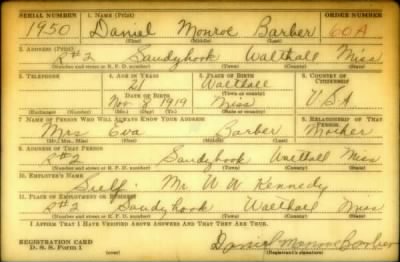 SERIAL NUMBER 1. NAME (Print) ORDER NUMBER
1950 Daniel Monroe Barber 60A
(First) (Middle) (Last)
2. ADDRESS (Print)
R#2 Sandyhook Walthall Miss
(Number and street or R. F. D. number) (Town) (County) (State)
3. TELEPHONE 4. AGE IN YEARS 5. PLACE OF BIRTH 6. COUNTRY OF CITIZENSHIP
21 Walthall
DATE OF BIRTH (Town or county)
Nov 8 1919 Miss U.S.A
(Exchange) (Number) (Mo.) (Day) (Yr.) (State or country)
7. NAME OF PERSON WHO WILL ALWAYS KNOW YOUR ADDRESS 8. RELATIONSHIP OF THAT PERSON
Mrs Eva Barber Mother
(Mr., Mrs., Miss) (First) (Middle) (Last)
9. ADDRESS OF THAT PERSON
R#2 Sandyhook Walthall Miss
(Number and street or R. F. D. number) (Town) (County) (State)
10. EMPLOYER'S NAME
Self- Mr. W W Kennedy
11. PLACE OF EMPLOYMENT OR BUSINESS
R#2 Sandyhook Walthall Miss
(Number and street or R. F. D. number) (Town) (County) (State)
I AFFIRM THAT I HAVE VERIFIED ABOVE ANSWERS AND THAT THEY ARE TRUE.
REGISTRATION CARD
D. S. S. Form 1 (over) Daniel Monroe Barber
(Registrant's signature)